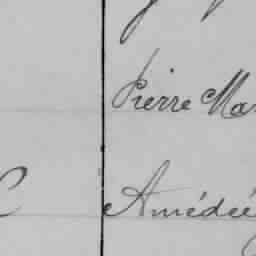 Pierre Mar
Amédée